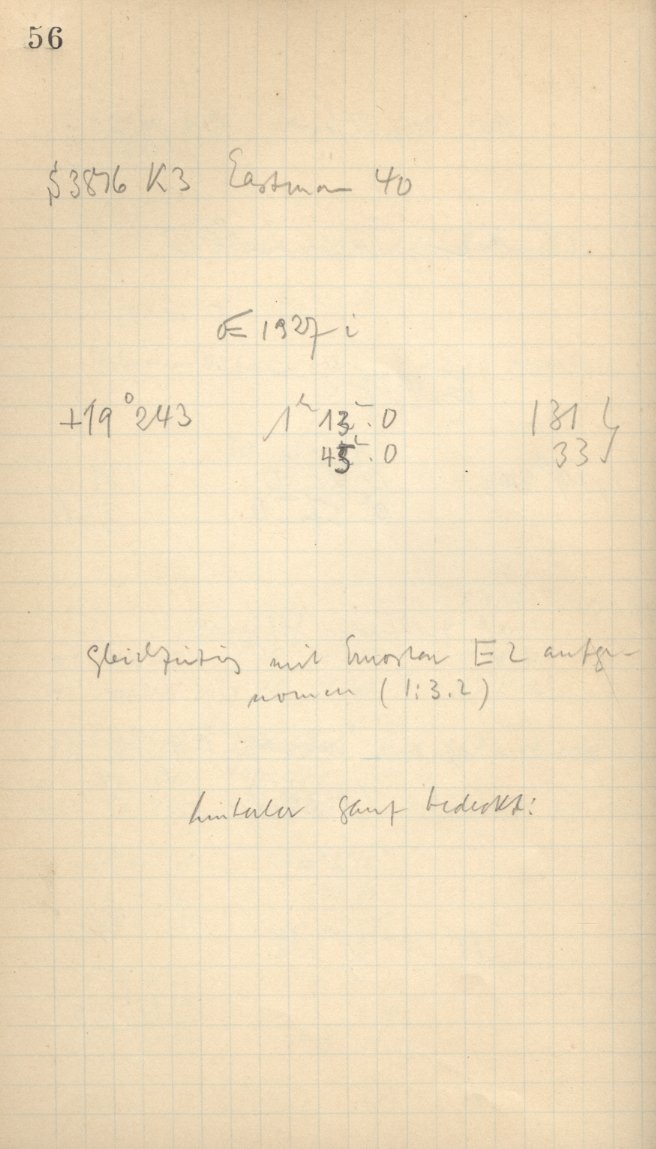 56
S3876 K3 Eastman 40
σE 1927 i
+19° 243 1ʰ 13ᵐ.0 131
43ᵐ.0 33
gleichzeitig mit Ernostar E2 aufge-
nomen (1:3.2)
hinterher ganz bedeckt!